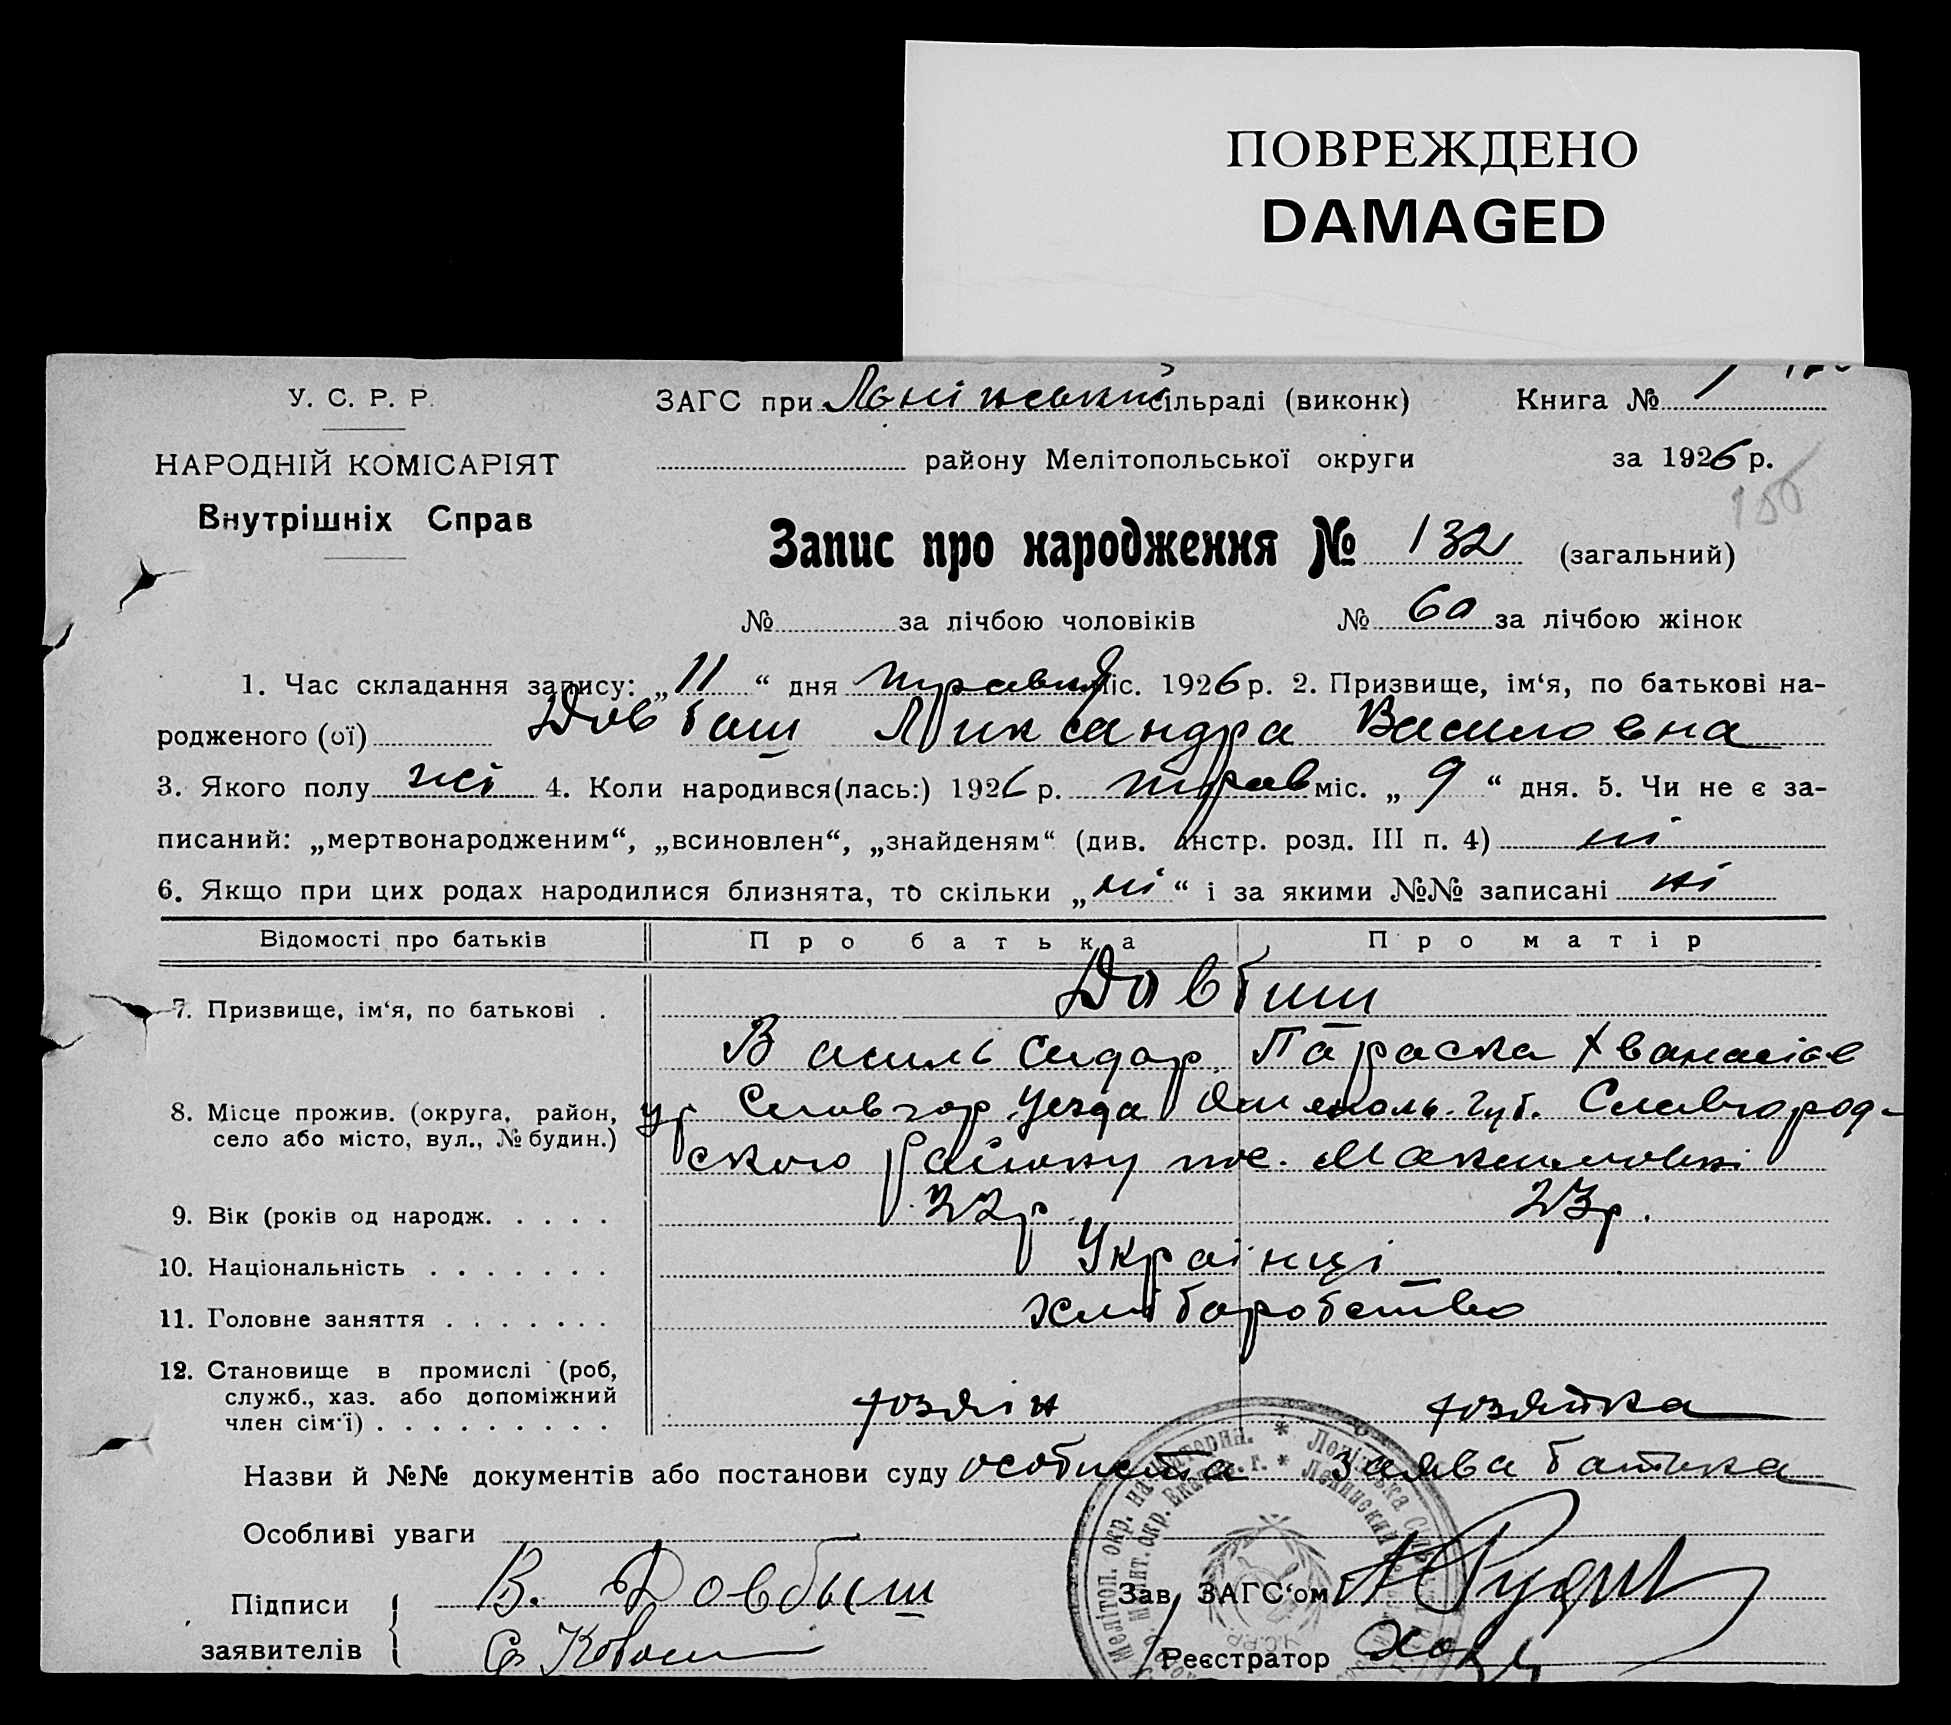 ПОВРЕЖДЕНО
DAMAGED
У. С. Р. Р.
ЗАГС при сільраді (виконк)
Книга № 1
НАРОДНІЙ КОМІСАРІЯТ
району Мелітопольської округи
за 1926 р.
Внутрішніх Справ
Запис про народження № 132 (загальний)
№ за лічбою чоловіків № 60 за лічбою жінок
1. Час складання запису: „11“ дня травня міс. 1926 р. 2. Призвище, ім‘я, по батькові на-
родженого (ої) Довбиш Александра Василовна
3. Якого полу жі 4. Коли народився(лась:) 1926 р. трав міс. „9“ дня. 5. Чи не є за-
писаний: „мертвонародженим“, „всиновлен“, „знайденям“ (див. інстр. розд. III п. 4) ні
6. Якщо при цих родах народилися близнята, то скільки „ні“ і за якими №№ записані ні
Відомості про батьків
Про батька
Про матір
7. Призвище, ім‘я, по батькові .
Довбиш
Василь Сидор. Параска Хванасіев
8. Місце прожив. (округа, район,
село або місто, вул., № будин.)
ур Славгор. Уезда губ. Славгород-
ского району пос. Максимовкі
9. Вік (років од народж. . . . .
22 р.
23 р.
10. Національність . . . . . . .
Українці
11. Головне заняття . . . . . . .
хліборобство
12. Становище в промислі (роб,
служб., хаз. або допоміжний
член сім‘ї) . . . . . . . . .
хозяін
хозяйка
Назви й №№ документів або постанови суду особиста заява батька
Особливі уваги
Підписи
заявителів
В. Довбыш
Зав. ЗАГС‘ом
Реєстратор